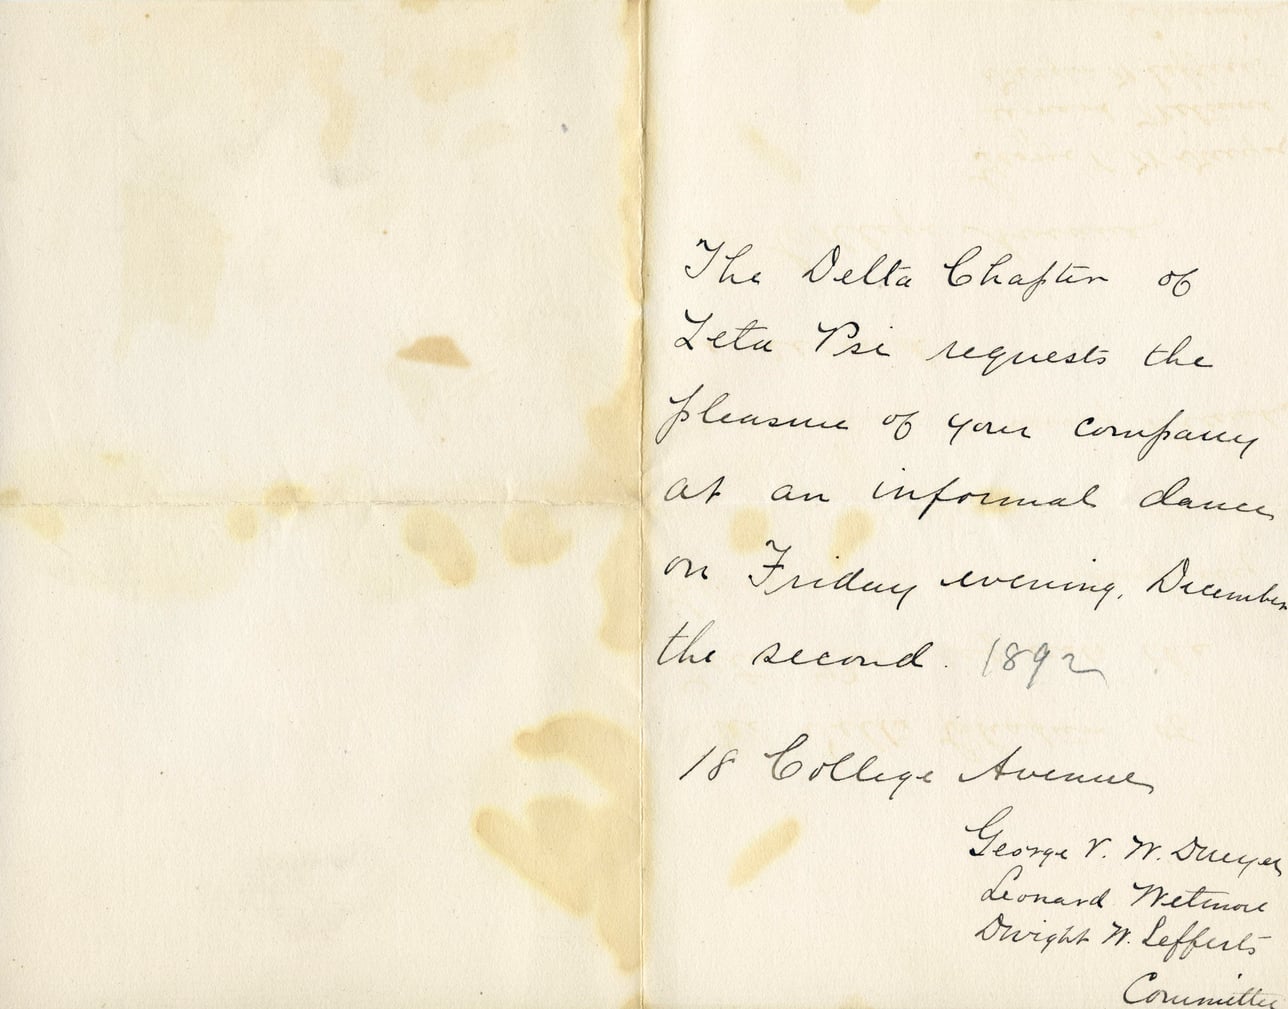 The Delta Chapter of
Zeta Psi requests the
pleasure of your company
at an informal dance
on Friday evening, December
the second. 1892
18 College Avenue
George V. W. Duryee
Leonard Wetmore
Dwight W. Lefferts
Committee